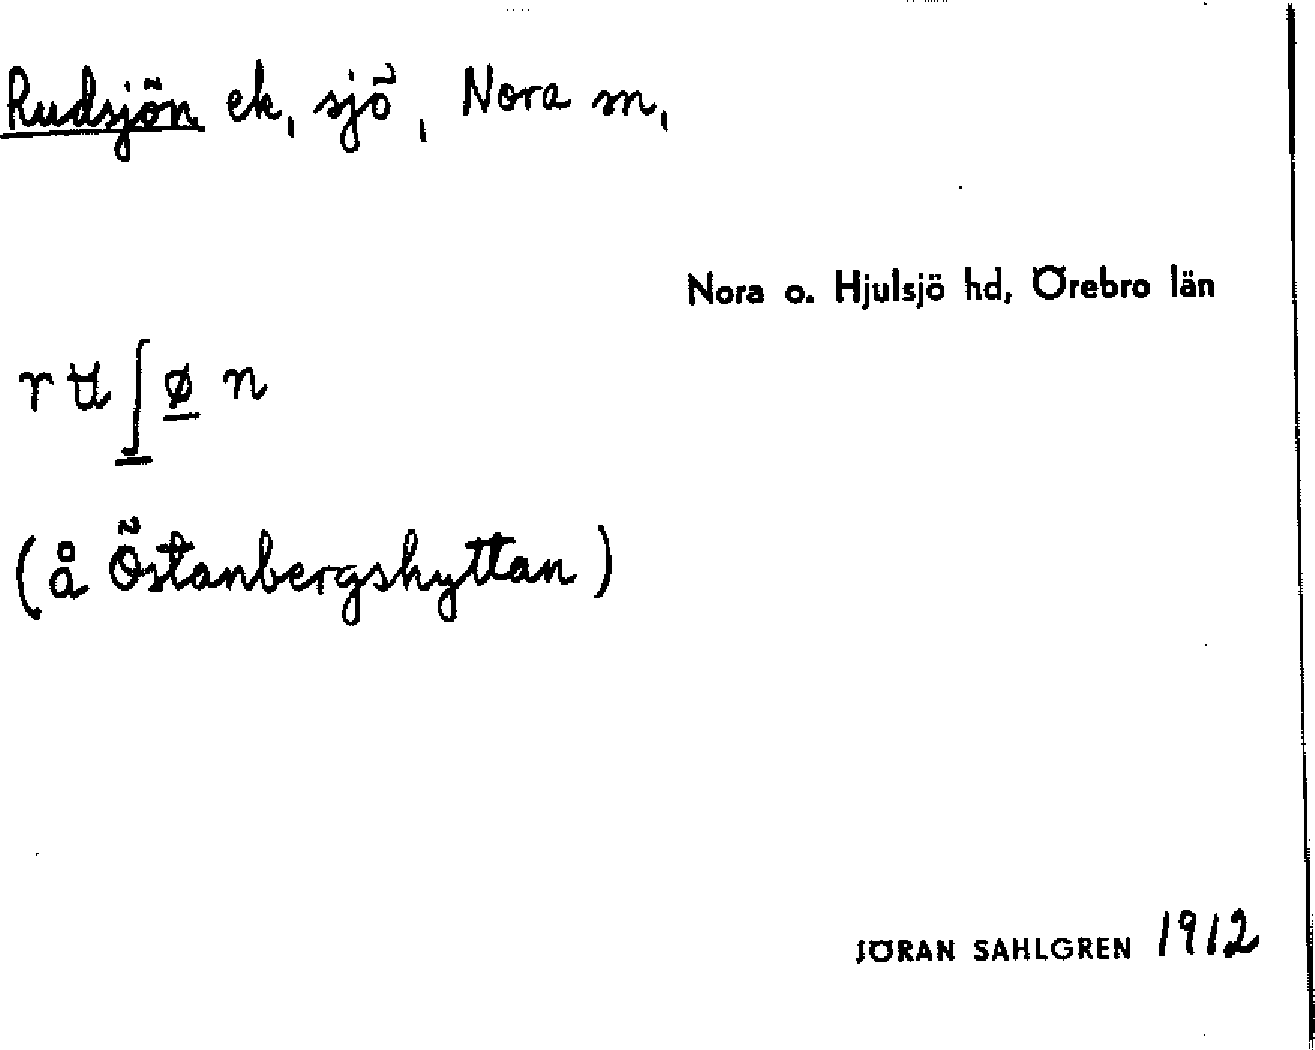 Rudsjön ek, sjö, Nora sn,
Nora o. Hjulsjö hd, Örebro län
r ʉ ʃ ø n
(å Östanbergshyttan)
JÖRAN SAHLGREN 1912